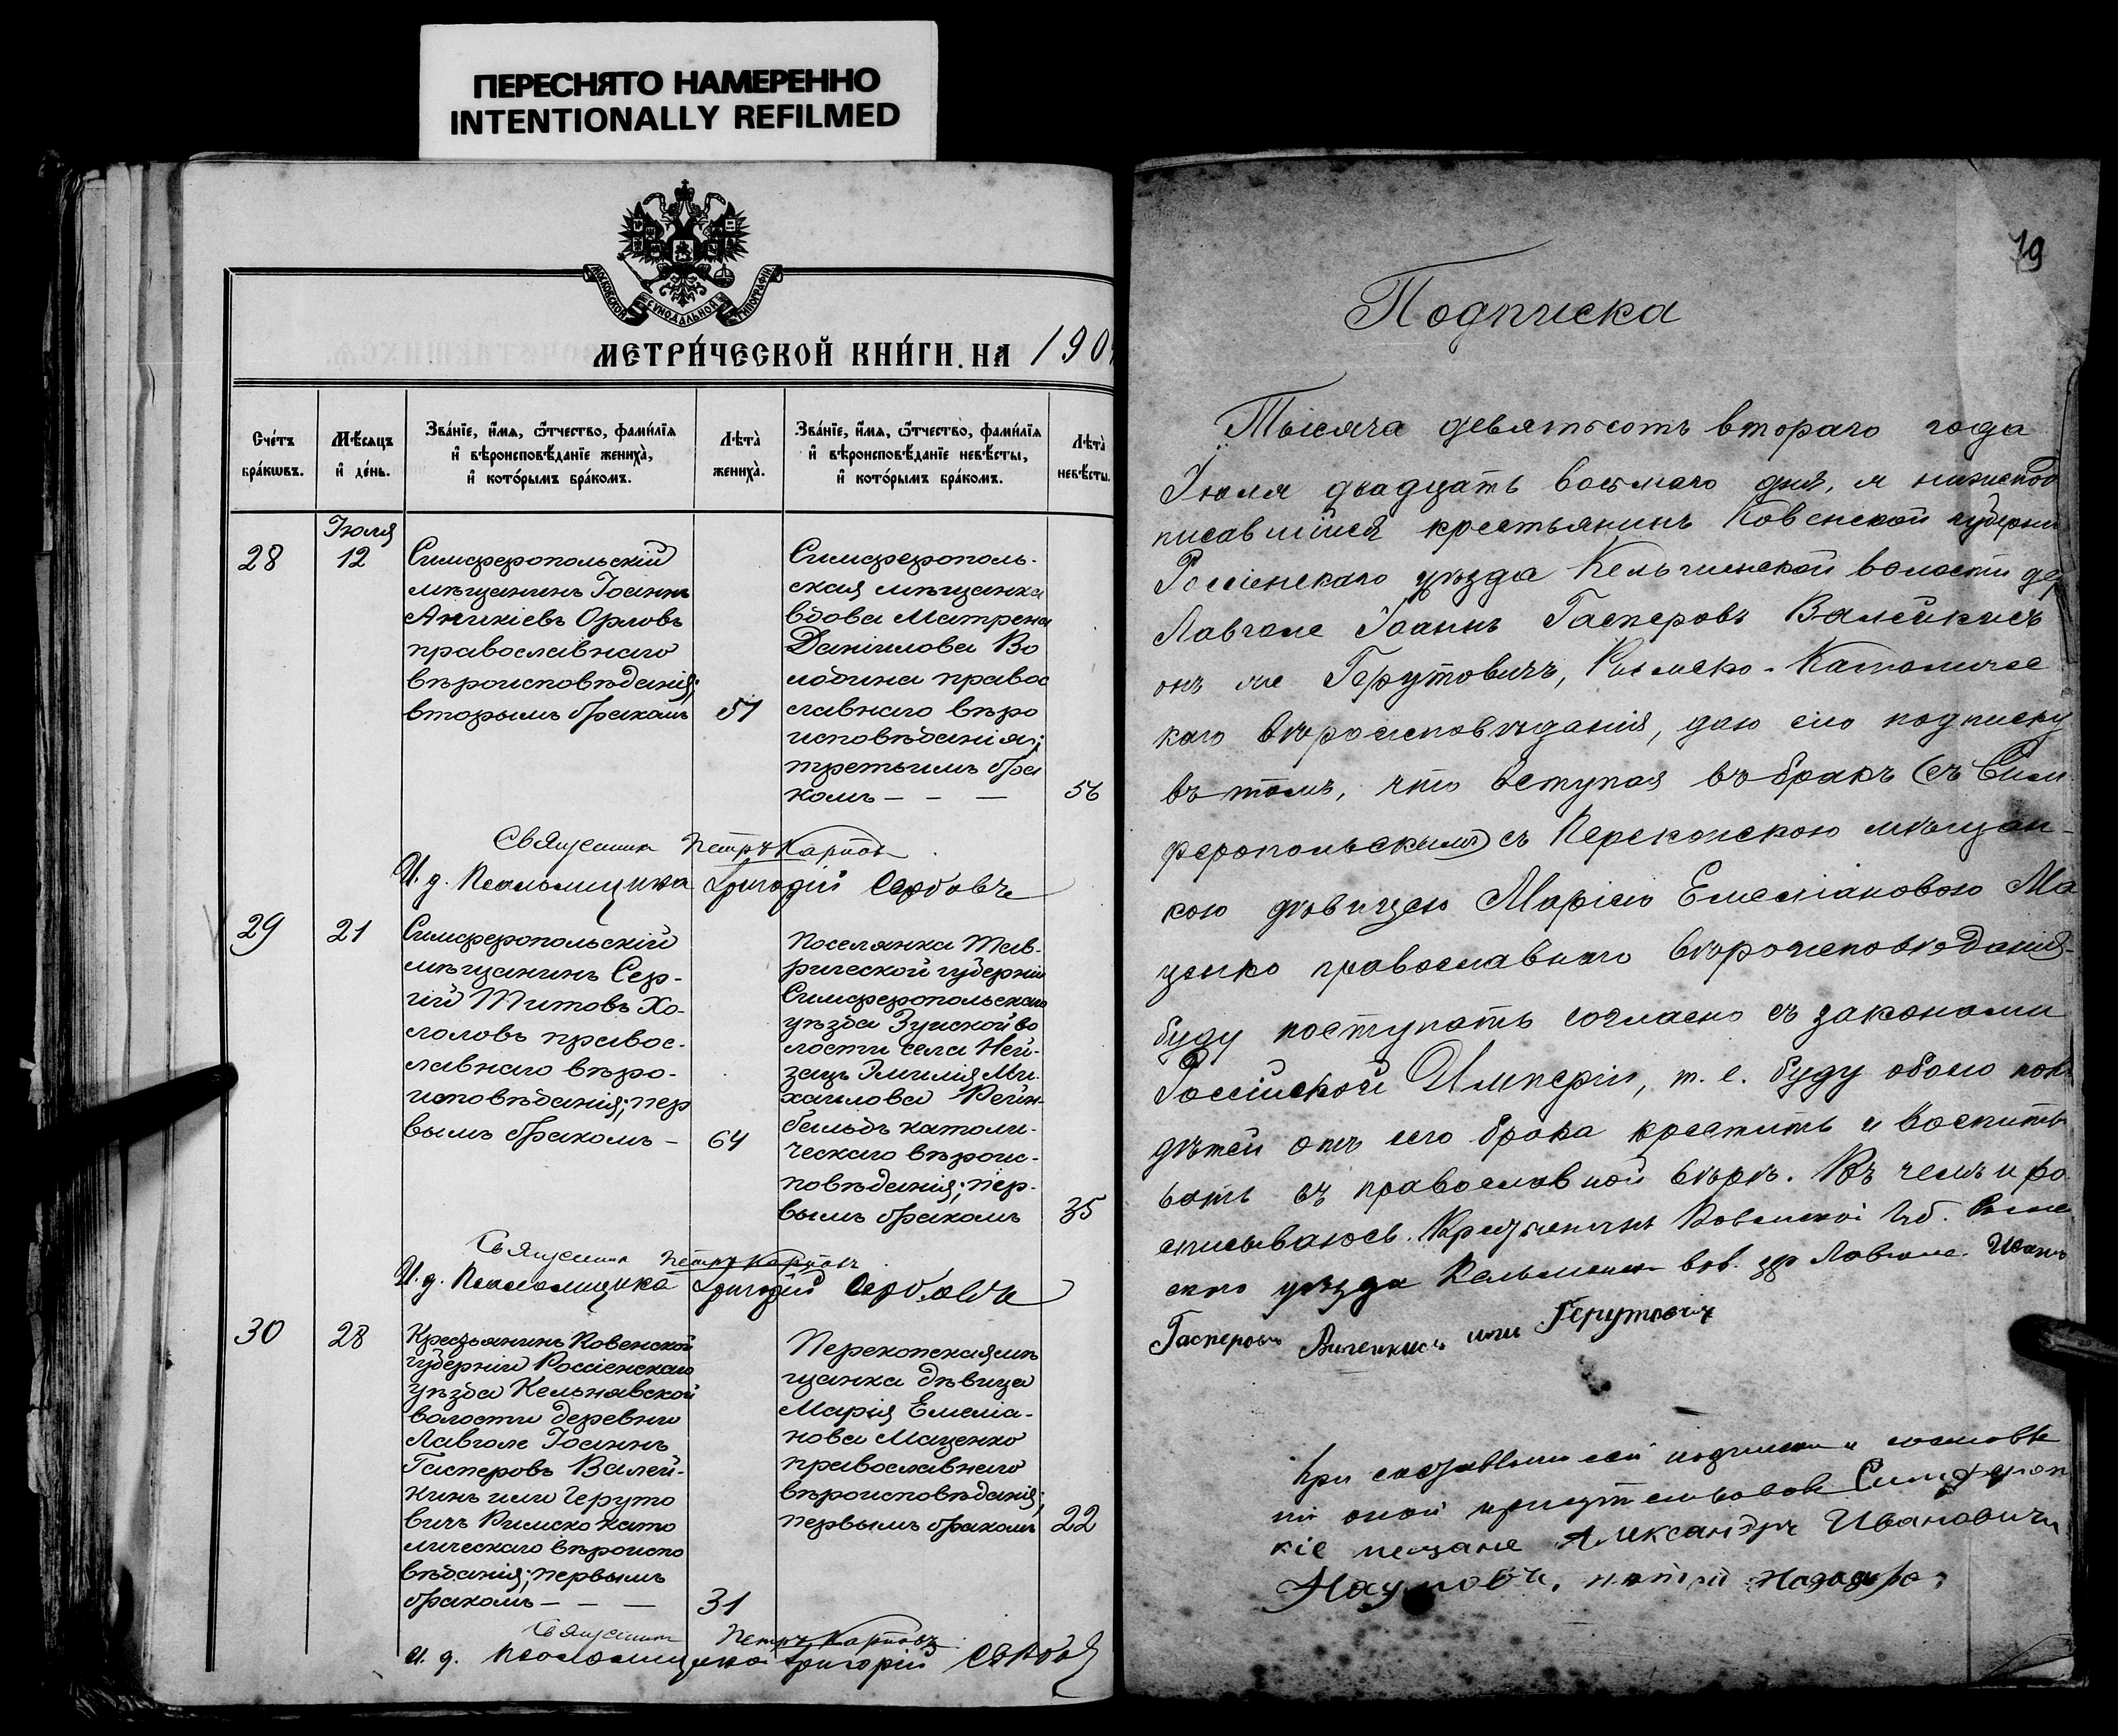 ПЕРЕСНЯТО НАМЕРЕННО
INTENTIONALLY REFILMED
МОСКОВСКОЙ СѴНОДАЛЬНОЙ ТИПОГРАФІИ
МЕТРИ́ЧЕСКОЙ КНИ́ГИ, НА 190
Сче́тъ
бра́кωвъ.
Мѣ́сяцъ
и҆ де́нь.
Зва́нїе, и҆́мѧ, ѻ҆́тчество, фами́лїѧ
и҆ вѣроисповѣ́данїе жениха̀,
и҆ кото́рымъ бра́комъ.
Лѣта̀
жениха̀.
Зва́нїе, и҆́мѧ, ѻ҆́тчество, фами́лїѧ
и҆ вѣроисповѣ́данїе невѣ́сты,
и҆ кото́рымъ бра́комъ.
Лѣта̀
невѣ́сты.
Іюля
28
12
Симферопольскій
мѣщанинъ Іоаннъ
Аникіевъ Орловъ
православнаго
вѣроисповѣданія;
вторымъ бракомъ
51
Симферополь-
ская мѣщанка
вдова Матрена
Даніилова Во
лобина правос
славнаго вѣро
исповѣданія;
третьимъ бра
комъ — — —
56
Священникъ Петръ Карповъ
И. д. Псаломщика Григорій Сербовъ
29
21
Симферопольскій
мѣщанинъ Сер-
гій Титовъ Хо-
лоловъ правос-
лавнаго вѣро-
исповѣданія; пер
вымъ бракомъ —
64
Поселянка Тав-
рической губерніи
Симферопольскаго
уѣзда Зуйской во
лости села Ней-
зацъ Эмилія Ми-
хаилова Рейн-
бильдъ католи-
ческаго вѣроис-
повѣданія; пер-
вымъ бракомъ
35
Священникъ Петръ Карповъ
И. д. Псаломщика Григорій Сербовъ
30
28
Крестьянинъ Ковенской
губерніи Россіенскаго
уѣзда Кельнявской
волости деревни
Лавголе Іоаннъ
Гасперовъ Валей-
кинъ или Геруто
вичъ Римско като
лическаго вѣроиспо
вѣданія; первымъ
бракомъ — — —
31
Перекопская мѣ
щанка дѣвица
Марія Емеліа-
нова Маценко
православнаго
вѣроисповѣданія;
первымъ бракомъ
22
Священникъ Петръ Карповъ
И. д. Псаломщика Григорій
79
Подписка
Тысяча девятьсотъ втораго года
Іюля двадцать восьмаго дня, я нижепод
писавшійся крестьянинъ Ковенской губерніи
Россіенскаго уѣзда Кельчинской волости дер
Лавголе Іоаннъ Гасперовъ Валейкисъ
онъ же Герутовичъ, Римско-Католичес
каго вѣроисповѣданія, даю сію подписку
въ томъ, что вступая въ бракъ (съ Сим
феропольскимъ) съ Перекопскою мѣщан-
кою дѣвицею Маріею Емеліановою Ма
ценко православнаго вѣроисповѣданія
буду поступать согласно съ законами
Россійской Имперіи, т. е. буду обоего пола
дѣтей отъ сего брака крестить и воспиты
вать въ православной вѣрѣ. Въ чемъ и ро
списываюсь. Крестьянинъ Ковенской Губ. Россіе
скаго уѣзда вол. дер Лавголе. Иванъ
Гасперовъ Валейкисъ или Герутовичъ
При составленіи сей подписки и
оной присутствовали Симфероп
кіе мещане Александръ Ивановичъ
Наумовъ,